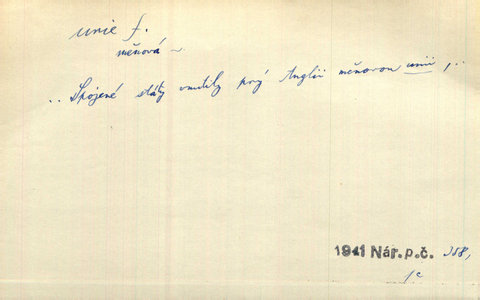 unie f.
měnová ~
.. Spojené státy vnutily prý Anglii měnovou unii, ..
1941 Nár. p. č. 358,
1c